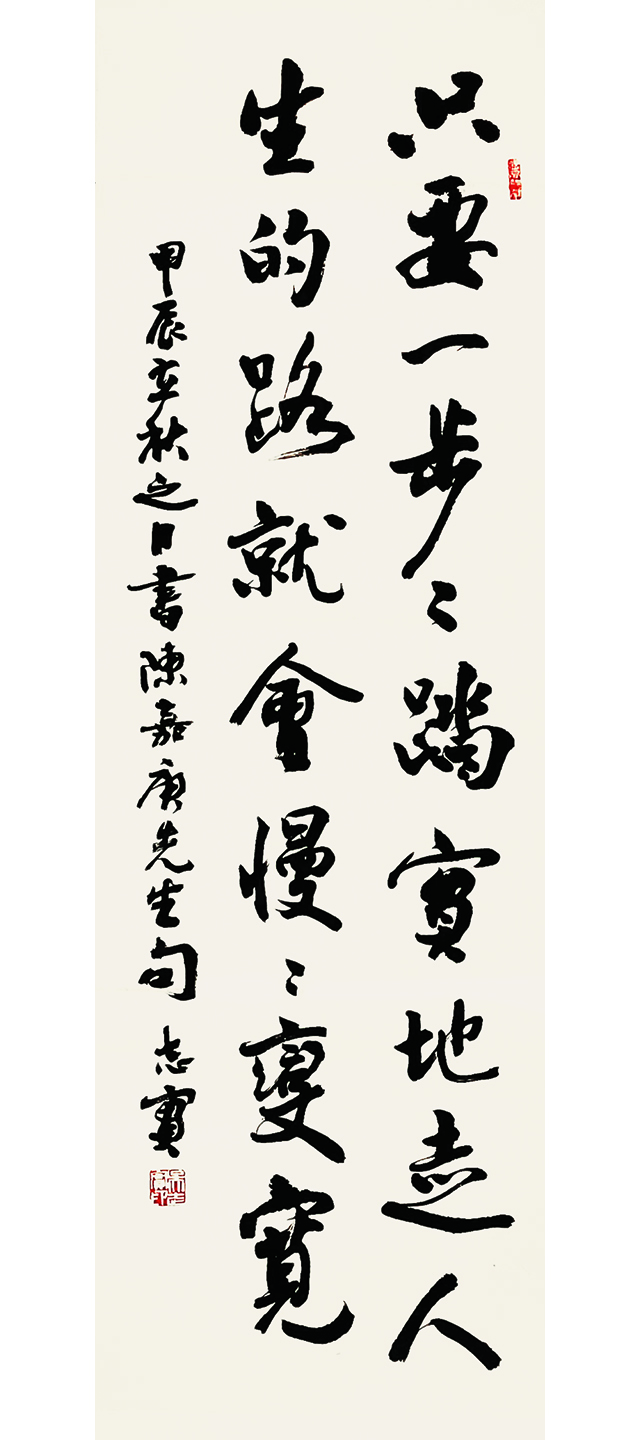 只要一步々踏實地走人
生的路就會慢々變寬
甲辰立秋之日書陳嘉庚先生句 志實